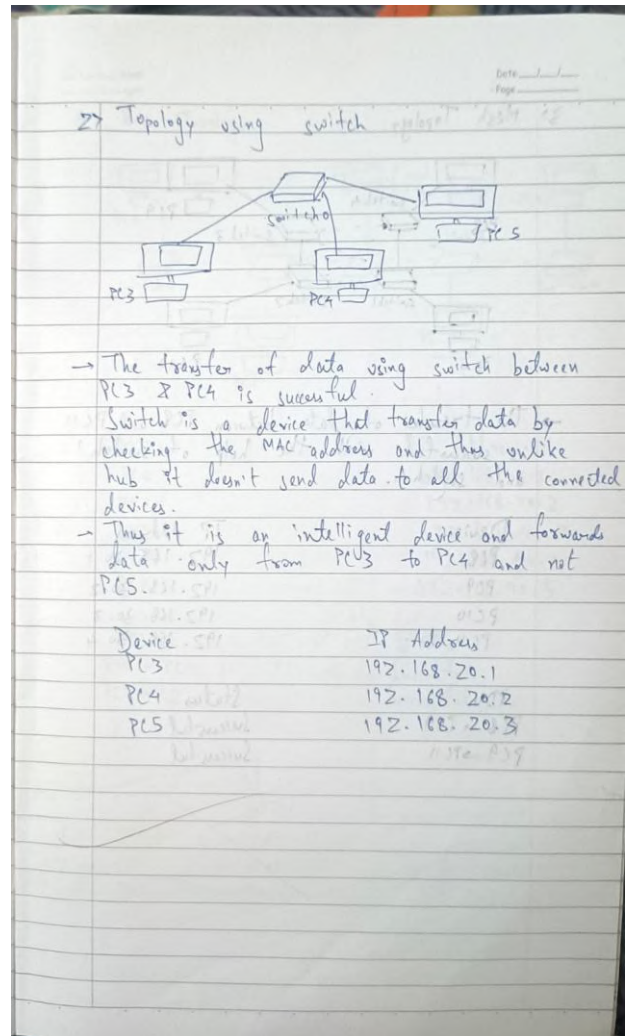 Date
Page
2> Topology using switch
switch0
PC5
PC3
PC4
→ The transfer of data using switch between
PC3 & PC4 is successful.
Switch is a device that transfer data by
checking the MAC address and thus unlike
hub it doesn't send data to all the connected
devices.
→ Thus it is an intelligent device and forwards
data only from PC3 to PC4 and not
PC5.
Device IP Address
PC3 192.168.20.1
PC4 192.168.20.2
PC5 192.168.20.3